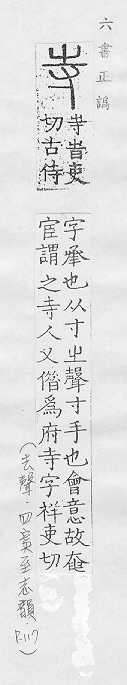 六書正譌
寺
寺旹吏
切古侍
字承也从寸㞢聲寸手也會意故奄
宦謂之寺人又借爲府寺字祥吏切
(去聲·四寘至志韻 P.117)